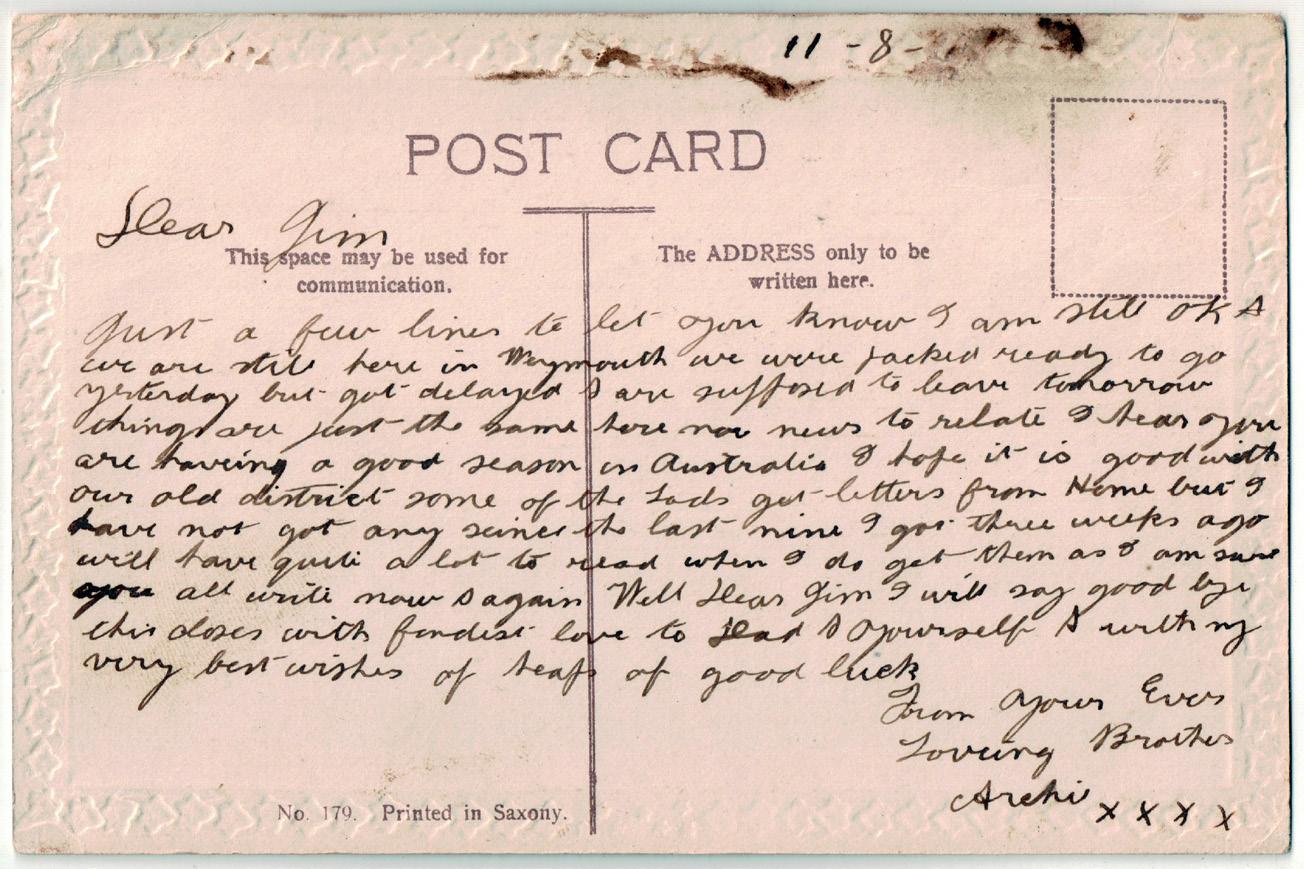 11 - 8 -
POST CARD
Dear Jim
This space may be used for
communication.
The ADDRESS only to be
written here.
Just a few lines to let you know I am still OK &
we are still here in Weymouth we were packed ready to go
yesterday but got delayed & are supposed to leave tomorrow
things are just the same here now news to relate I hear you
are haveing a good season in Australia I hope it is good with
our old district some of the Lads get letters from Home but I
have not got any scince the last nine I got three weeks ago
will have quite a lot to read when I do get them as I am sure
you all write now & again Well Dear Jim I will say good bye
this closes with fondest love to Dad & yourself & with my
very best wishes of heaps of good luck
From Your Ever
Loveing Brother
Archi x x x x
No. 179. Printed in Saxony.